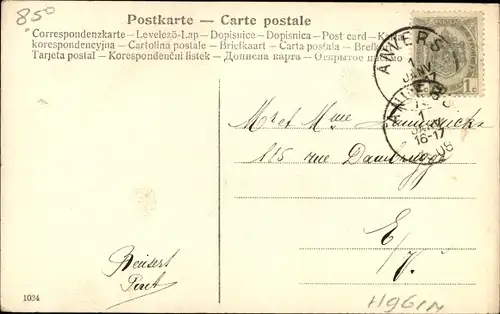 850
Postkarte — Carte postale
Correspondenzkarte - Levelező-Lap - Dopisnice - Dopisnica - Post card -
korespondencyjna - Cartolina postale - Briefkaart - Carta postala -
Tarjeta postal - Korespondenční listek - Дописна карта - Открытое письмо
ANVERS 1
1 JANV
1c
ANVERS
1
16-17
08
M et Mme
115 rue Dambrugge
E/V.
1034
H961M